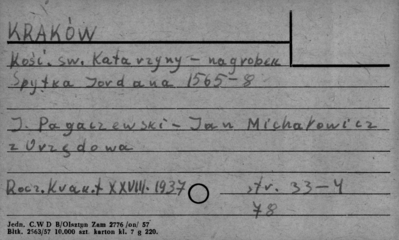 KRAKÓW
Kość. św. Katarzyny – nagrobek
Spytka Jordana 1565–8
J. Pagaczewski – Jan Michałowicz
z Urzędowa
Rocz. Krak. t XXVIII. 1937 str. 33–4
78
Jedn. C.W D B/Olsztyn Zam 2776/on/ 57
Bltk. 2563/57 10.000 szt. karton kl. 7 g 220.